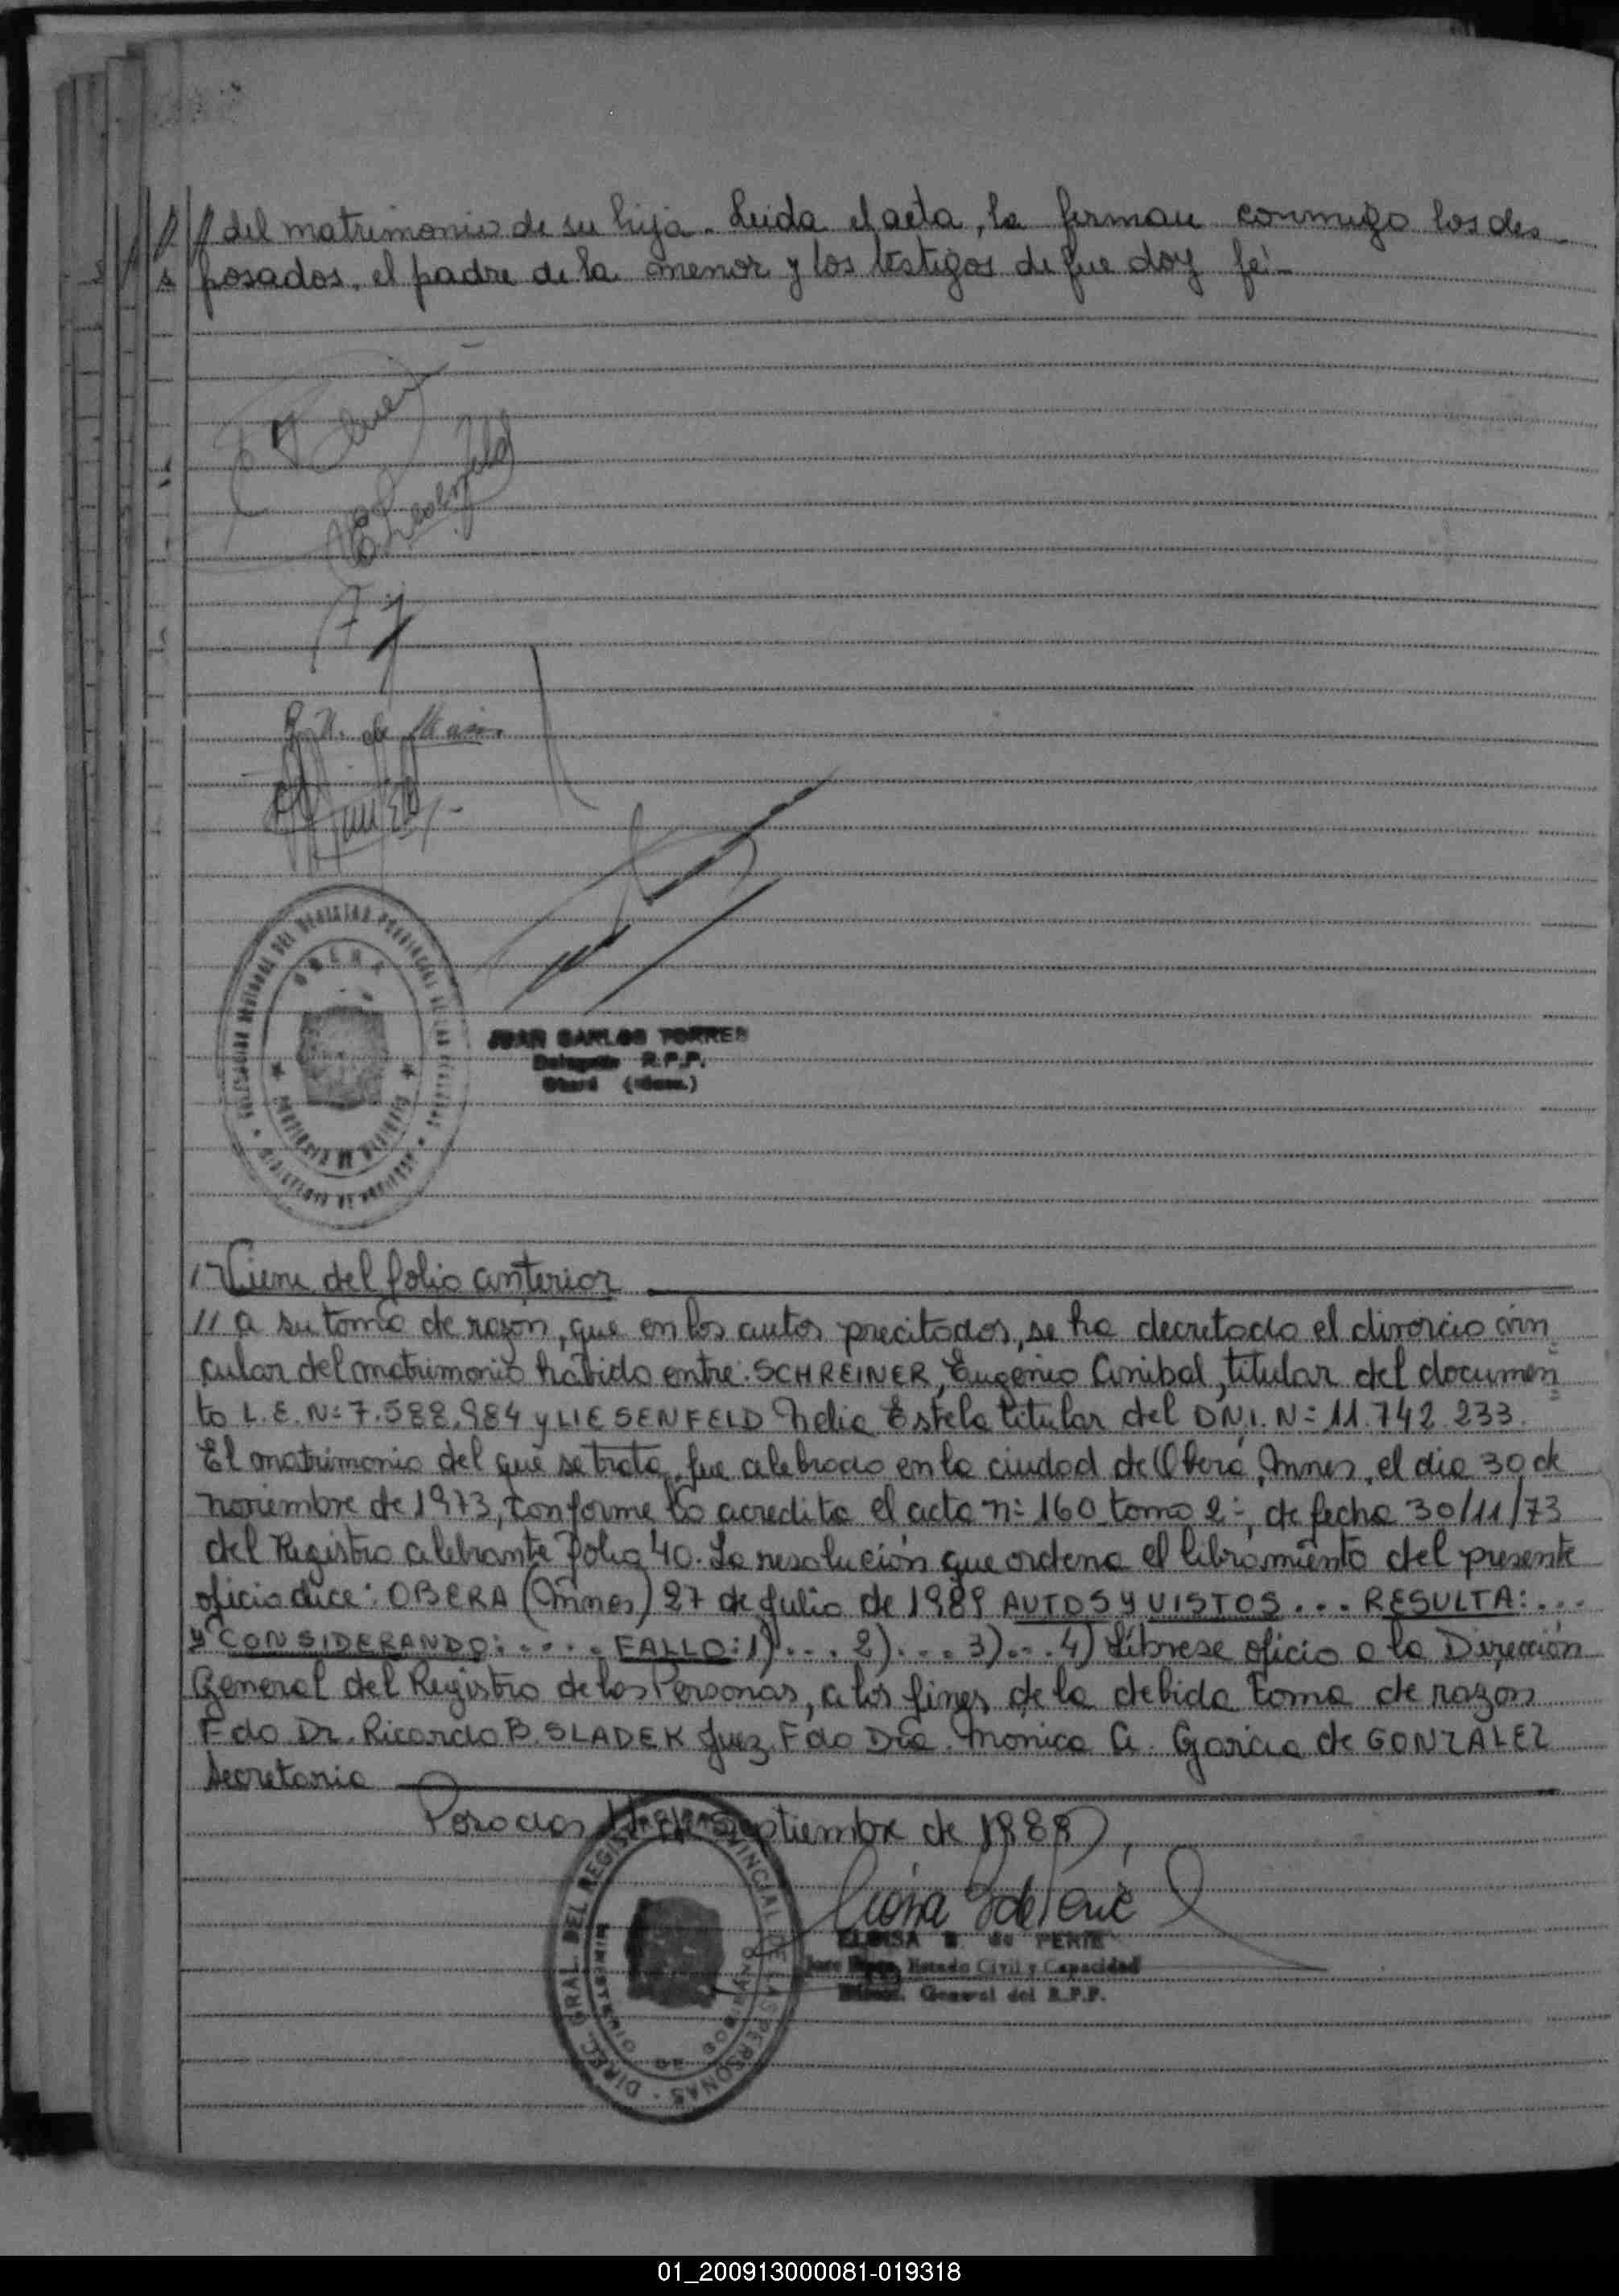 // del matrimonio de su hija. Leida el acta, la firman conmigo los des-
posados, el padre de la menor y los testigos de que doy fé.-
JUAN CARLOS TORRES
Delegado R.P.P.
Oberá (Mnes.)
OBERA
Viene del folio anterior
// a su toma de razón, que en los autos precitados, se ha decretado el divorcio vin
cular del matrimonio habido entre: SCHREINER, Eugenio Anibal, titular del documen
to L.E. Nº 7.588.984 y LIESENFELD Nelia Estela titular del D.N.I. Nº 11.742.233.
El matrimonio del que se trata, fue celebrado en la ciudad de Oberá, Mnes, el dia 30 de
noviembre de 1973, conforme lo acredita el acta nº 160 tomo 2º, de fecha 30/11/73
del Registro celebrante folio 40. La resolución que ordena el libramiento del presente
oficio dice: OBERA (Mnes) 27 de Julio de 1989 AUTOS Y VISTOS ... RESULTA: ...
y CONSIDERANDO: ..... FALLO: 1) ... 2) ... 3) ... 4) Líbrese oficio a la Dirección
General del Registro de las Personas, a los fines de la debida toma de razon
Fdo Dr. Ricardo B. SLADEK Juez. Fdo Dra. Monica A. Garcia de GONZALEZ
Secretaria
Posadas de Septiembre de 1989
ELOISA B. de PERIE
Estado Civil y Capacidad
General del R.P.P.
DIREC. GRAL. DEL REGISTRO PROVINCIAL DE LAS PERSONAS
01_200913000081-019318